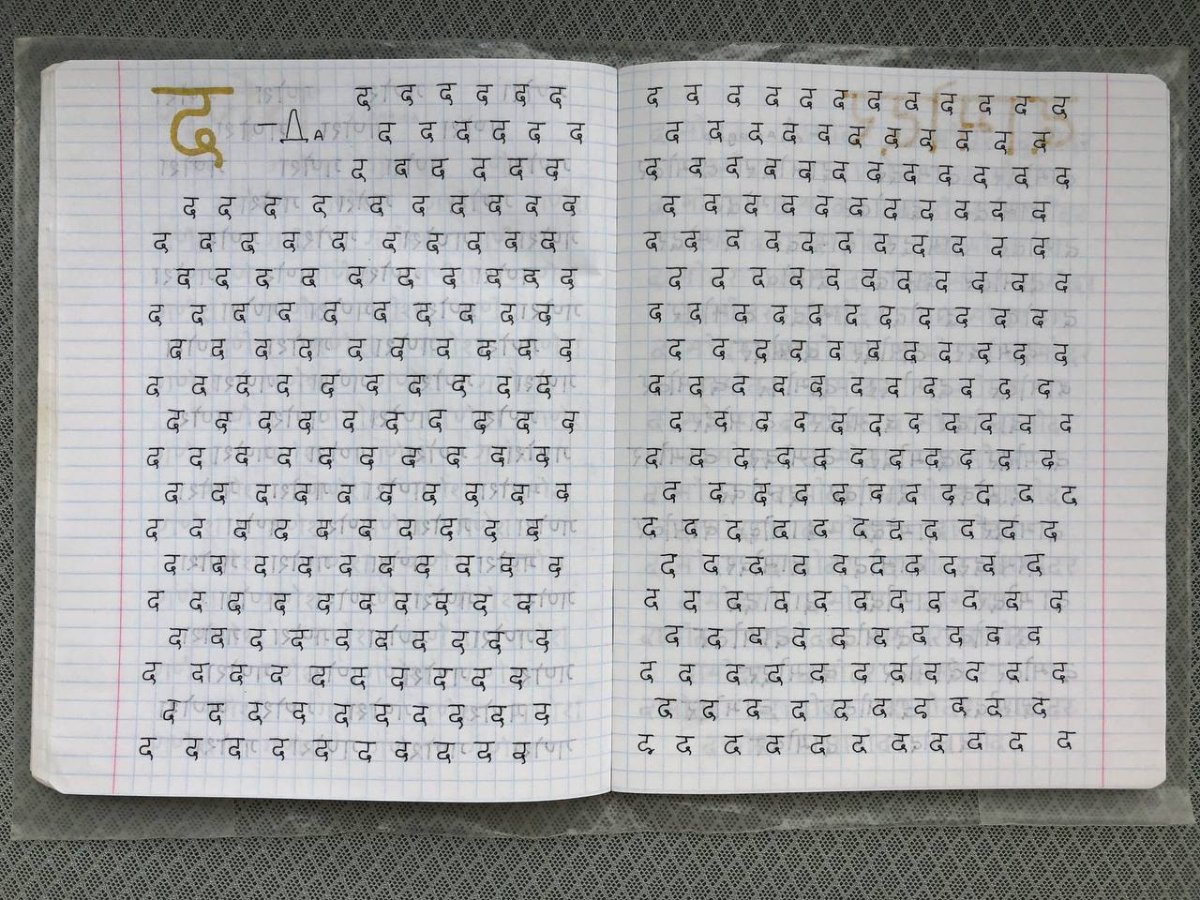 द – Да द द द द द द
द द द द द द
द द द द द द
द द द द द द द द द द
द द द द द द द द द द
द द द द द द द द द द
द द द द द द द द द द
द द द द द द द द द द
द द द द द द द द द द
द द द द द द द द द द
द द द द द द द द द द
द द द द द द द द द द
द द द द द द द द द द
द द द द द द द द द द
द द द द द द द द द द
द द द द द द द द द द
द द द द द द द द द द
द द द द द द द द द द
द द द द द द द द द द
द द द द द द द द द द द द
द द द द द द द द द द द
द द द द द द द द द द द द
द द द द द द द द द द द
द द द द द द द द द द द
द द द द द द द द द द द
द द द द द द द द द द द
द द द द द द द द द द द
द द द द द द द द द द द
द द द द द द द द द द द
द द द द द द द द द द द
द द द द द द द द द द द
द द द द द द द द द द द
द द द द द द द द द द
द द द द द द द द द द द
द द द द द द द द द द
द द द द द द द द द द द
द द द द द द द द द द
द द द द द द द द द द द